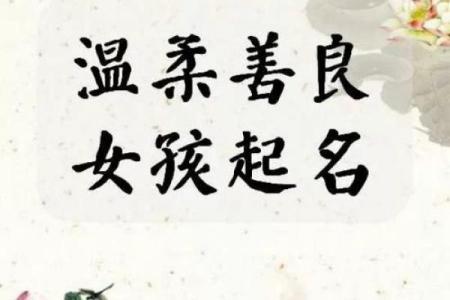 温柔善良
女孩起名